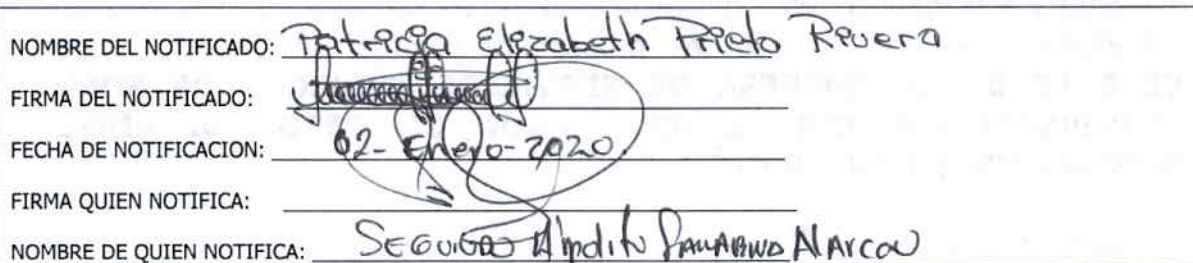 NOMBRE DEL NOTIFICADO: Patricia Elizabeth Prieto Rivera
FIRMA DEL NOTIFICADO:
FECHA DE NOTIFICACION: 02-Enero-2020
FIRMA QUIEN NOTIFICA:
NOMBRE DE QUIEN NOTIFICA: SEGUNDO Alarcon